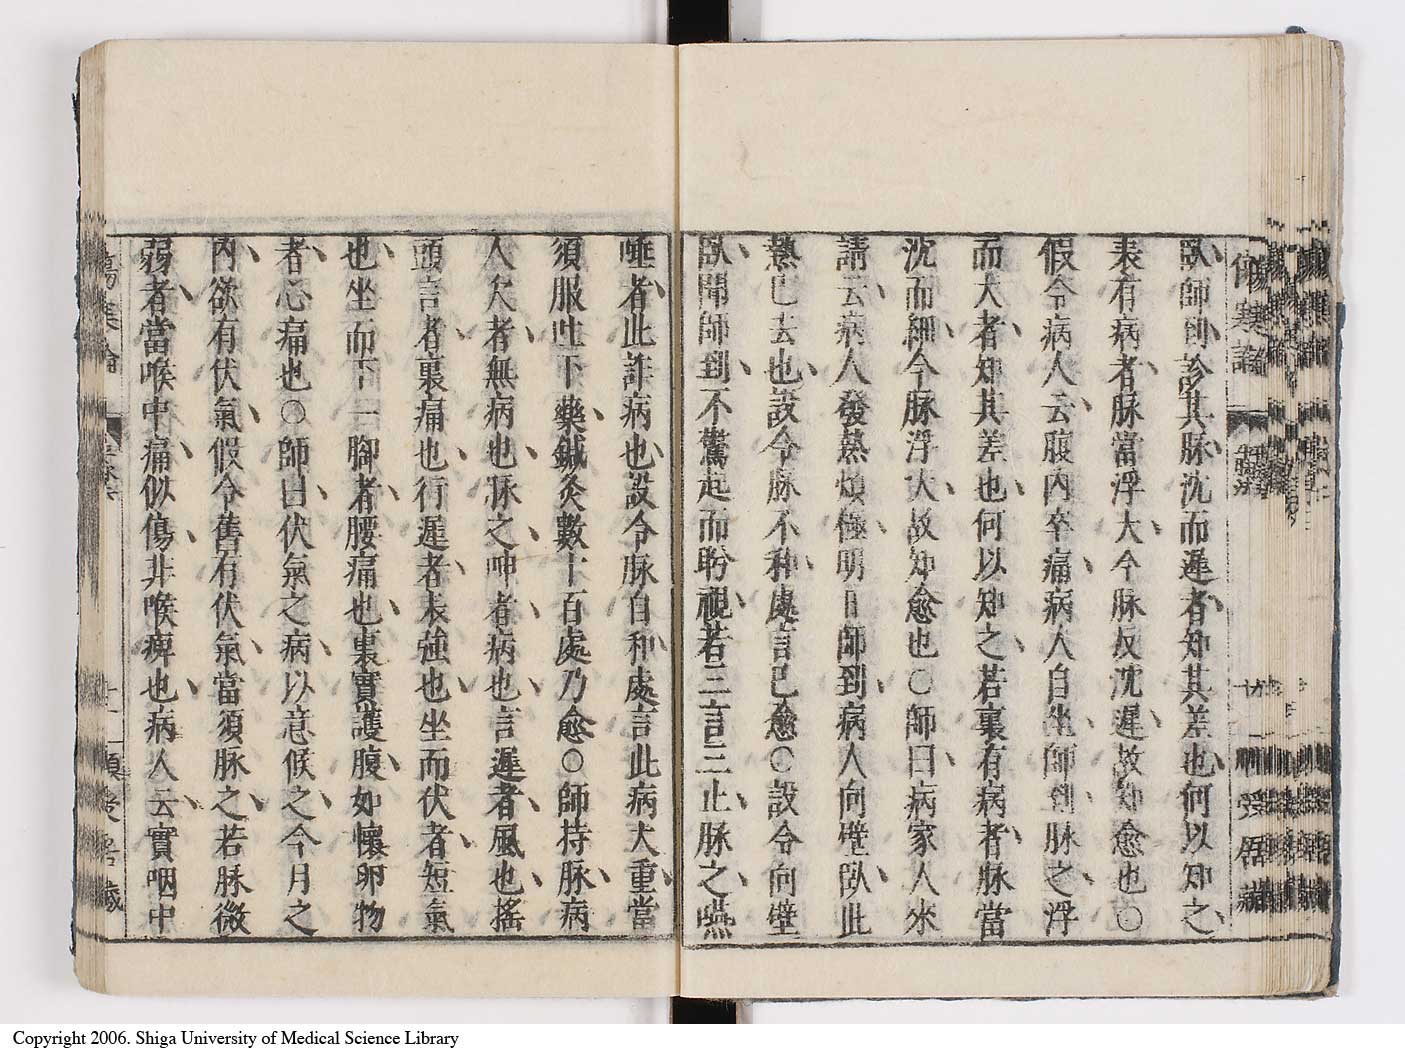 傷寒論
平脉法
臥師到診其脉沈而遲者知其差也何以知之
表有病者脉當浮大今脉反沈遲故知愈也〇
假令病人云腹内卒痛病人自坐師到脉之浮
而大者知其差也何以知之若裏有病者脉當
沈而細今脉浮大故知愈也〇師曰病家人來
請云病人發熱煩極明日師到病人向壁臥此
熱已去也設令脉不和處言已愈〇設令向壁
臥聞師到不驚起而盻視若三言三止脉之嚥
唾者此詐病也設令脉自和處言此病大重當
須服吐下藥鍼灸數十百處乃愈〇師持脉病
人欠者無病也脉之呻者病也言遲者風也搖
頭言者裏痛也行遲者表強也坐而伏者短氣
也坐而下一腳者腰痛也裏實護腹如懷卵物
者心痛也〇師曰伏氣之病以意候之今月之
內欲有伏氣假令舊有伏氣當須脉之若脉微
弱者當喉中痛似傷非喉痺也病人云實咽中
Copyright 2006. Shiga University of Medical Science Library